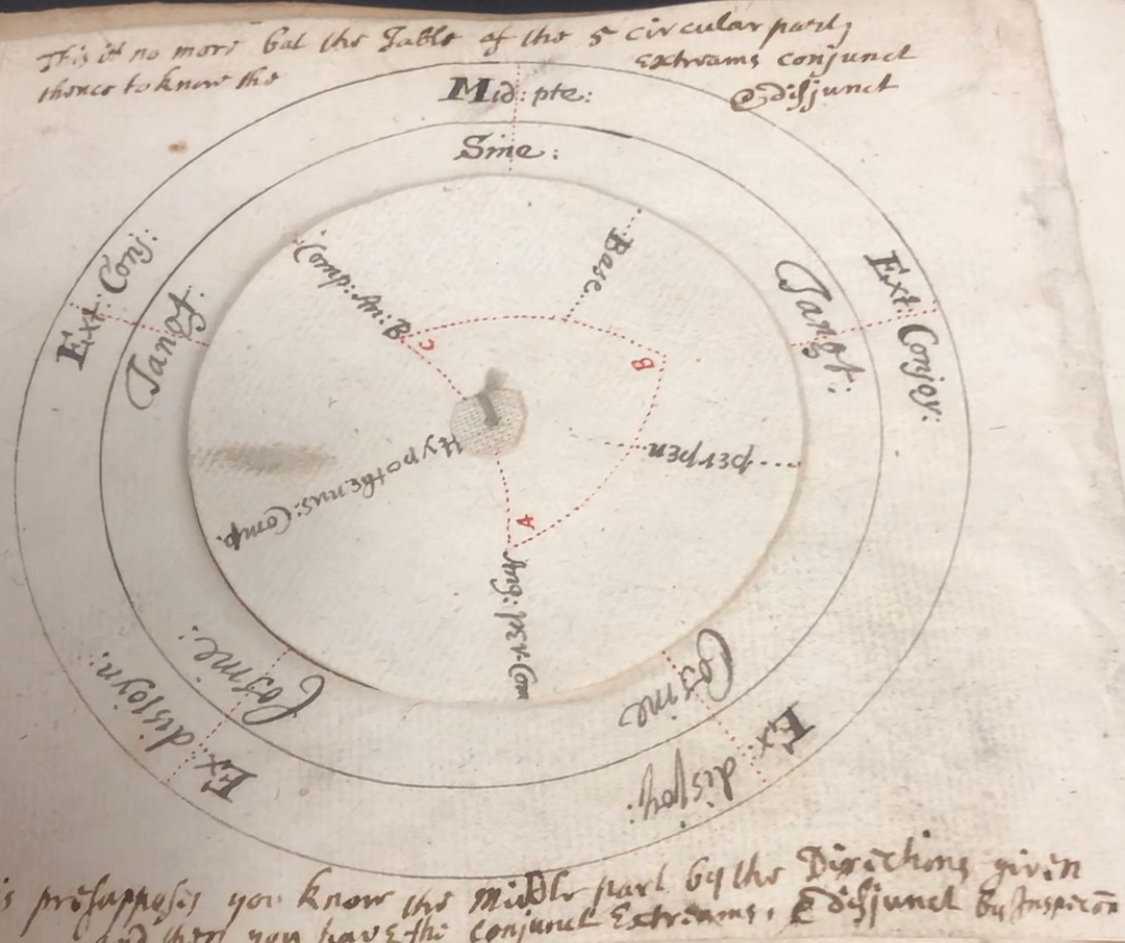 This is no more but the Table of the 5 circular parts
thence to know the Extreams conjunct
& disjunct
Mid: pte:
Sine:
Ext: Conj:
Tangt:
Tangt:
Ext: Conjoy:
Comp: An: B
Base
C
B
A
perpen
Hypothenus: Comp.
Ang: per: Com
Cosine:
Ex: disjoyn:
Cosine
Ex: disjoy:
presupposes you know the Middle part by the Directions given
and then you have the conjunct Extreams, & disjunct by Inspecon